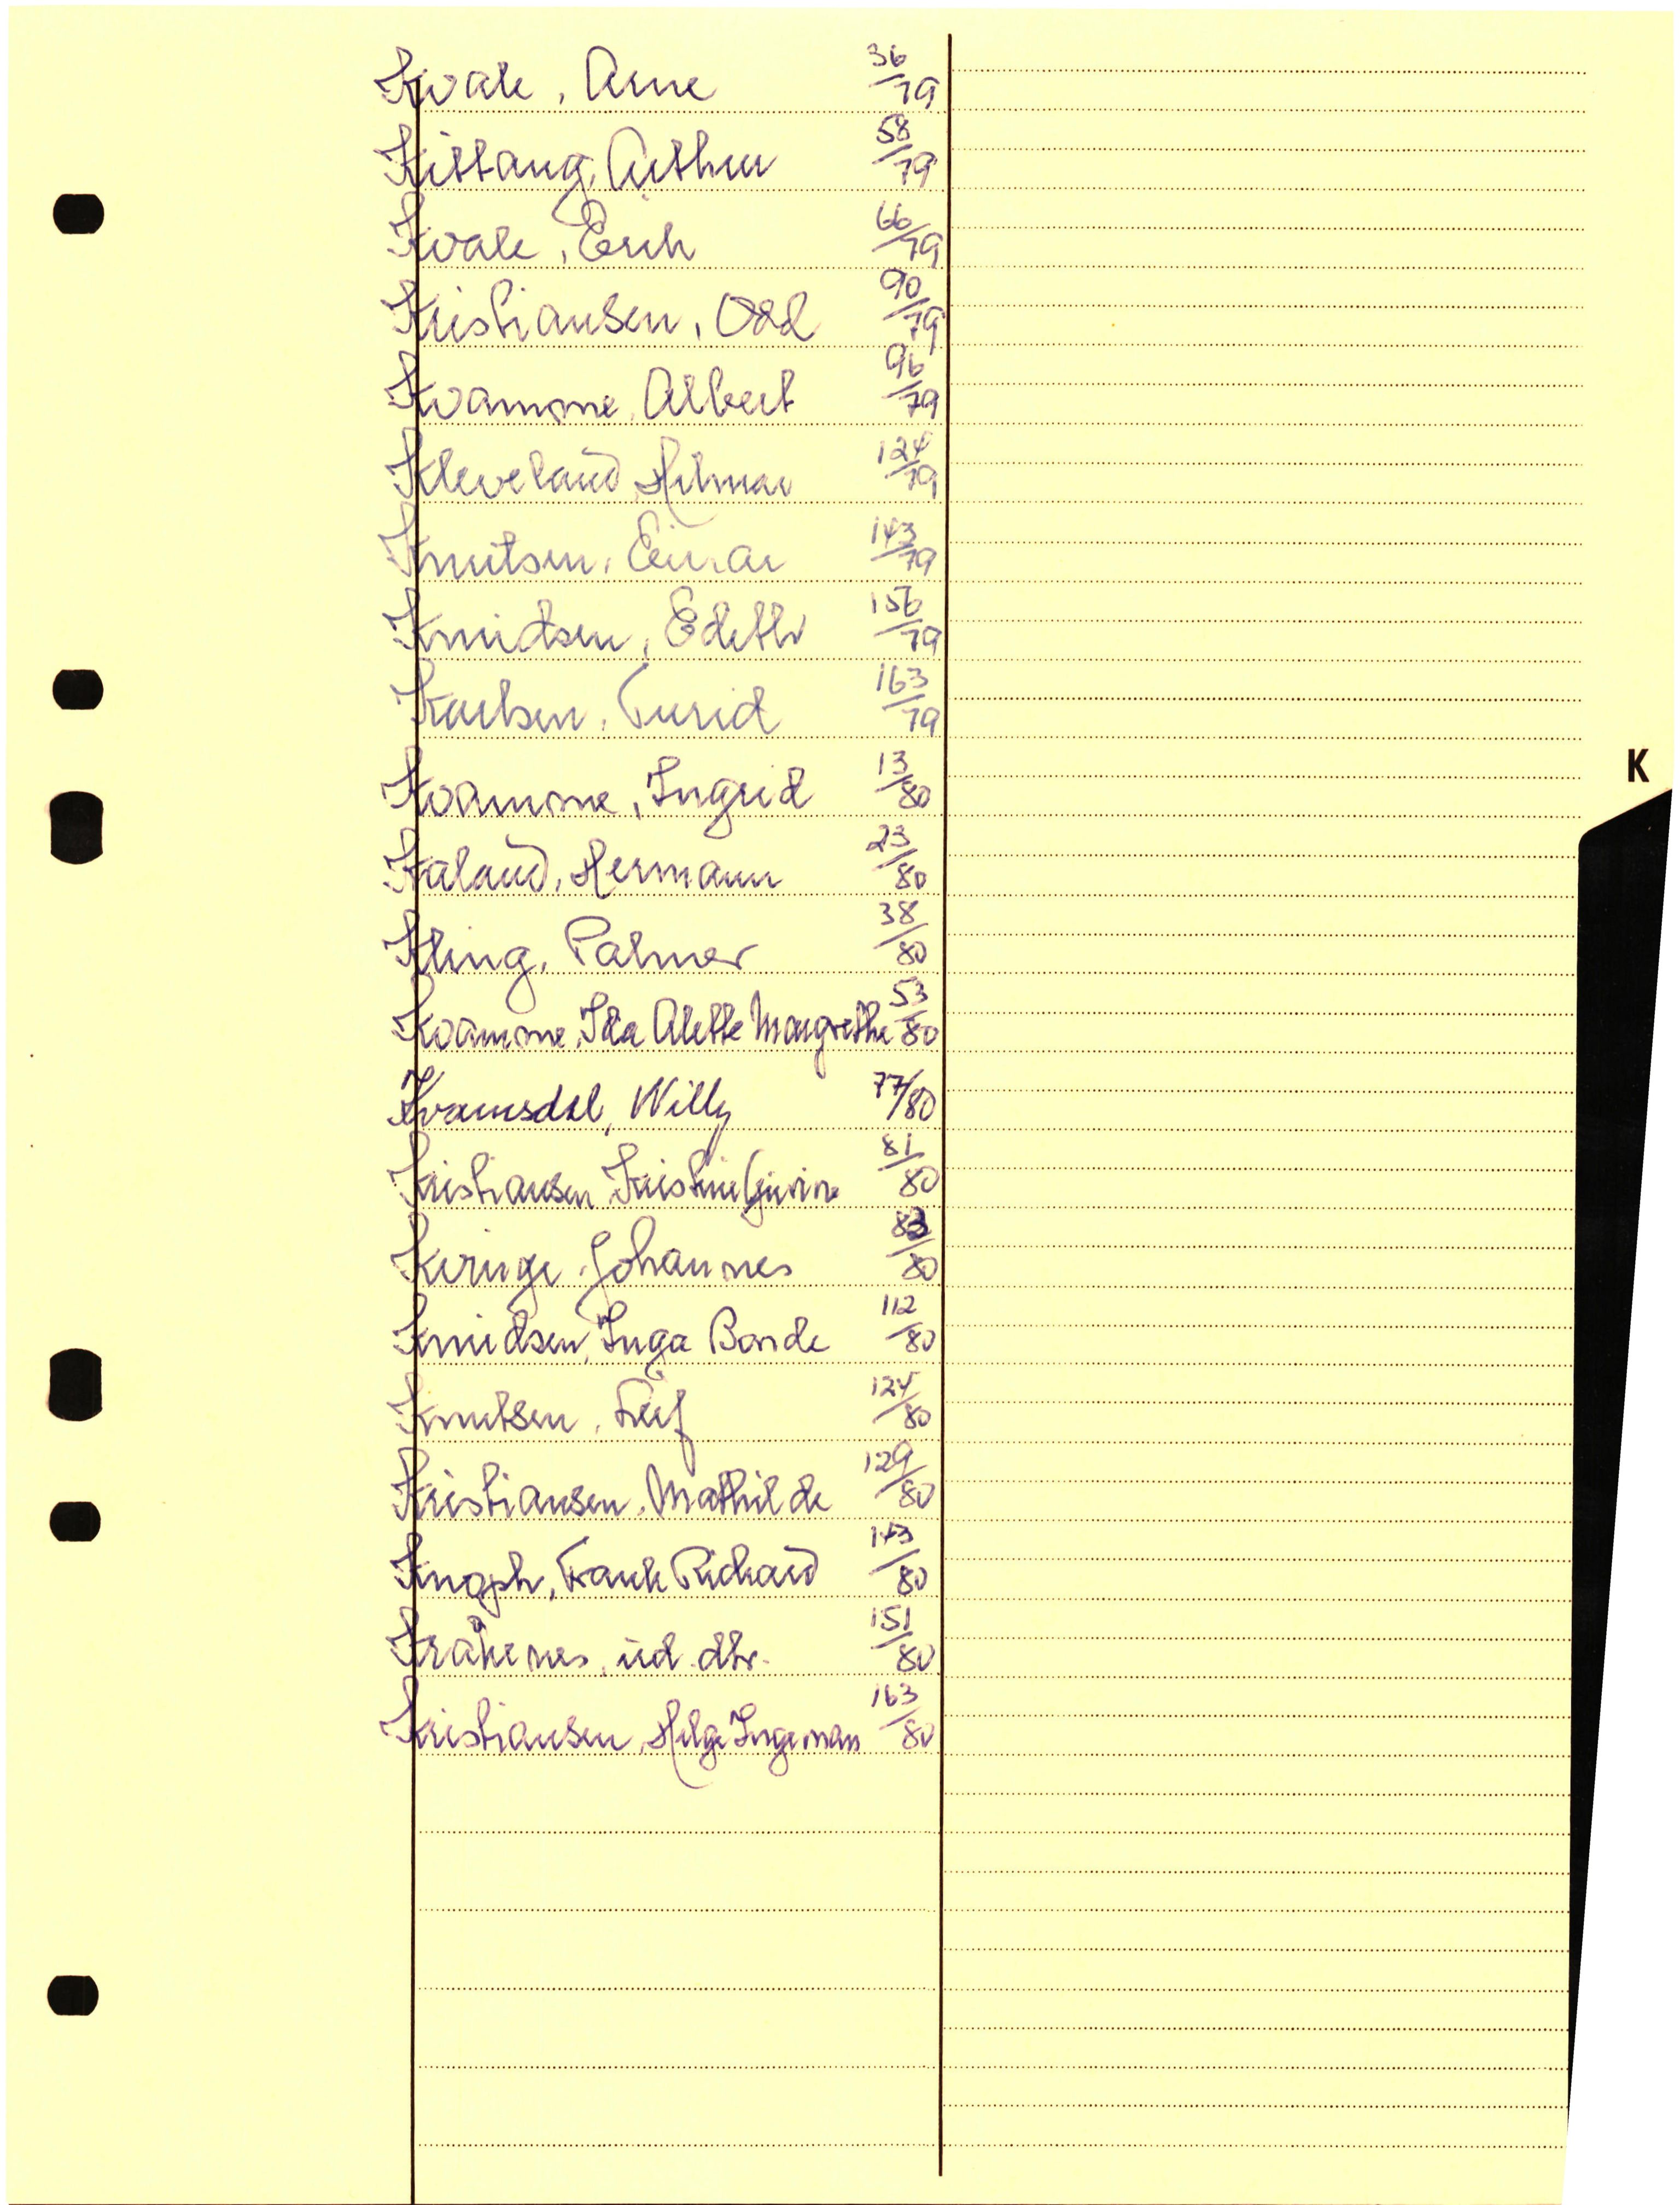 Kvale, Arne 36/79
Kittang, Arthur 58/79
Kvale, Erik 66/79
Kristiansen, Odd 90/79
Kvamme, Albert 96/79
Kleveland, Hilmar 124/79
Knutsen, Einar 143/79
Knudsen, Edith 156/79
Karlsen, Turid 163/79
K
Kvamme, Ingrid 13/80
Kaland, Hermann 23/80
Kling, Palmer 38/80
Kvamme, Ida Alette Margrethe 53/80
Kvamsdal, Willy 77/80
Kristiansen, Kristine 81/80
Johannes /80
Knudsen, Inga Bonde 112/80
Knutsen, Leif 124/80
Kristiansen, Mathilde 129/80
Frank Richard 143/80
Kråkenes, ud. dbr. 151/80
Kristiansen, Helge Ingeman 163/80